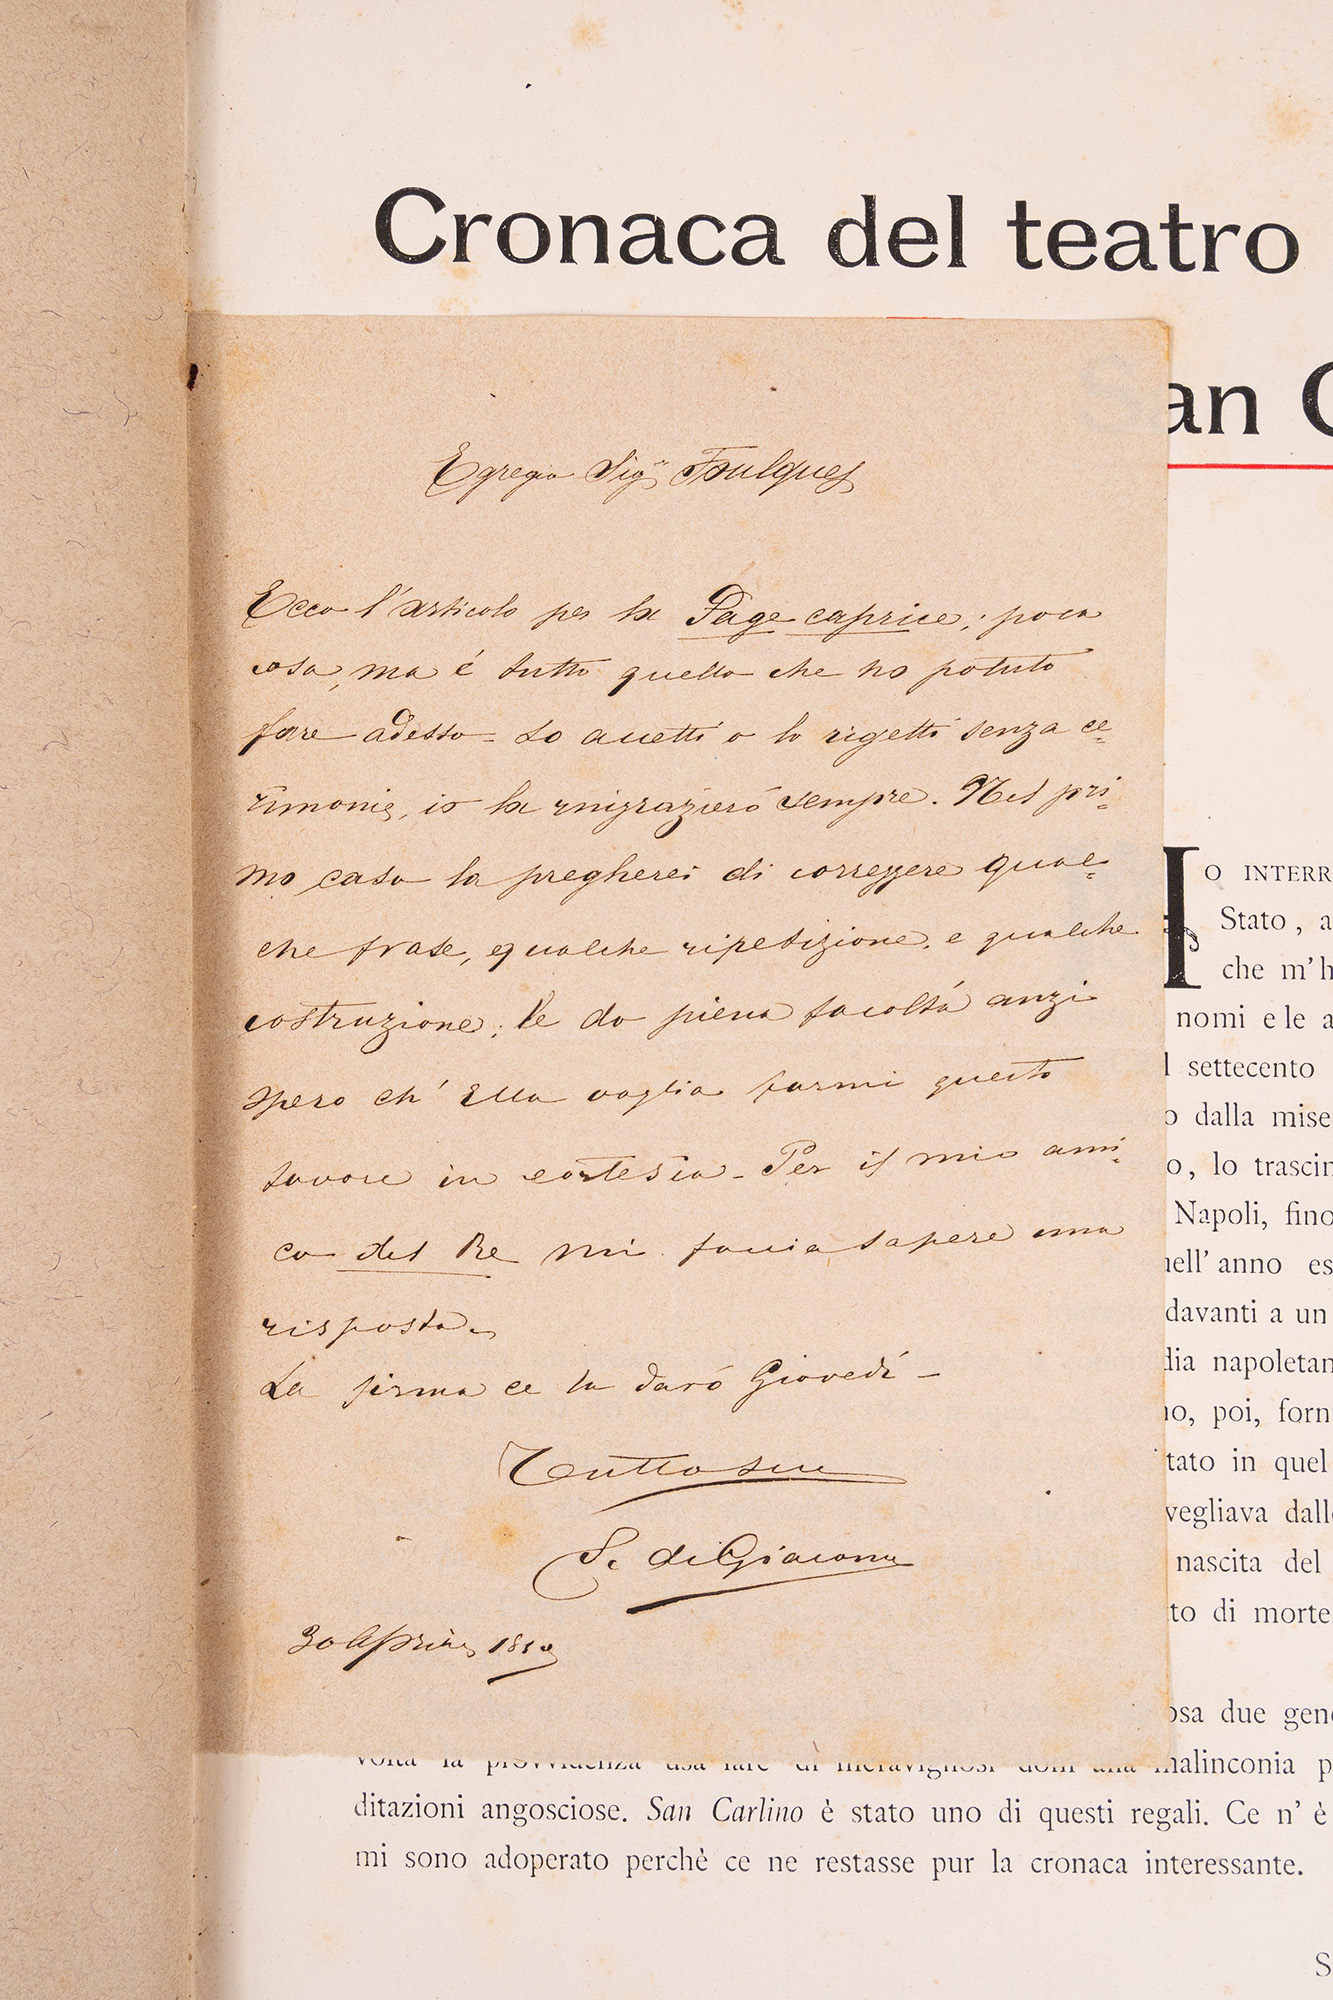 Cronaca del teatro
San C
Egregio Sigr Foulques
Ecco l'articolo per la Page caprice; poca
cosa, ma é tutto quello che ho potuto
fare adesso - Lo accetti o lo rigetti senza ce=
rimonie, io la ringrazieró sempre. Nel pri=
mo caso la pregherei di correggere qual=
che frase, e qualche ripetizione, e qualche
costruzione; le do piena facoltá anzi
spero ch' Ella voglia farmi questo
favore in cortesia - Per il mio ami=
co del Re mi faccia sapere una
risposta.
La firma ce la daró Giovedí -
Tutto suo
S. di Giacomo
30 Aprile
HO INTERR
Stato, a
che m'h
nomi e le a
l settecento
o dalla mise
o, lo trascin
Napoli, fino
nell' anno es
davanti a un
dia napoletan
no, poi, forn
tato in quel
vegliava dall
nascita del
to di morte
osa due gen
volta la provvidenza usa fare di meravigliosi doni alla malinconia p
ditazioni angosciose. San Carlino è stato uno di questi regali. Ce n' è
mi sono adoperato perchè ce ne restasse pur la cronaca interessante.
S